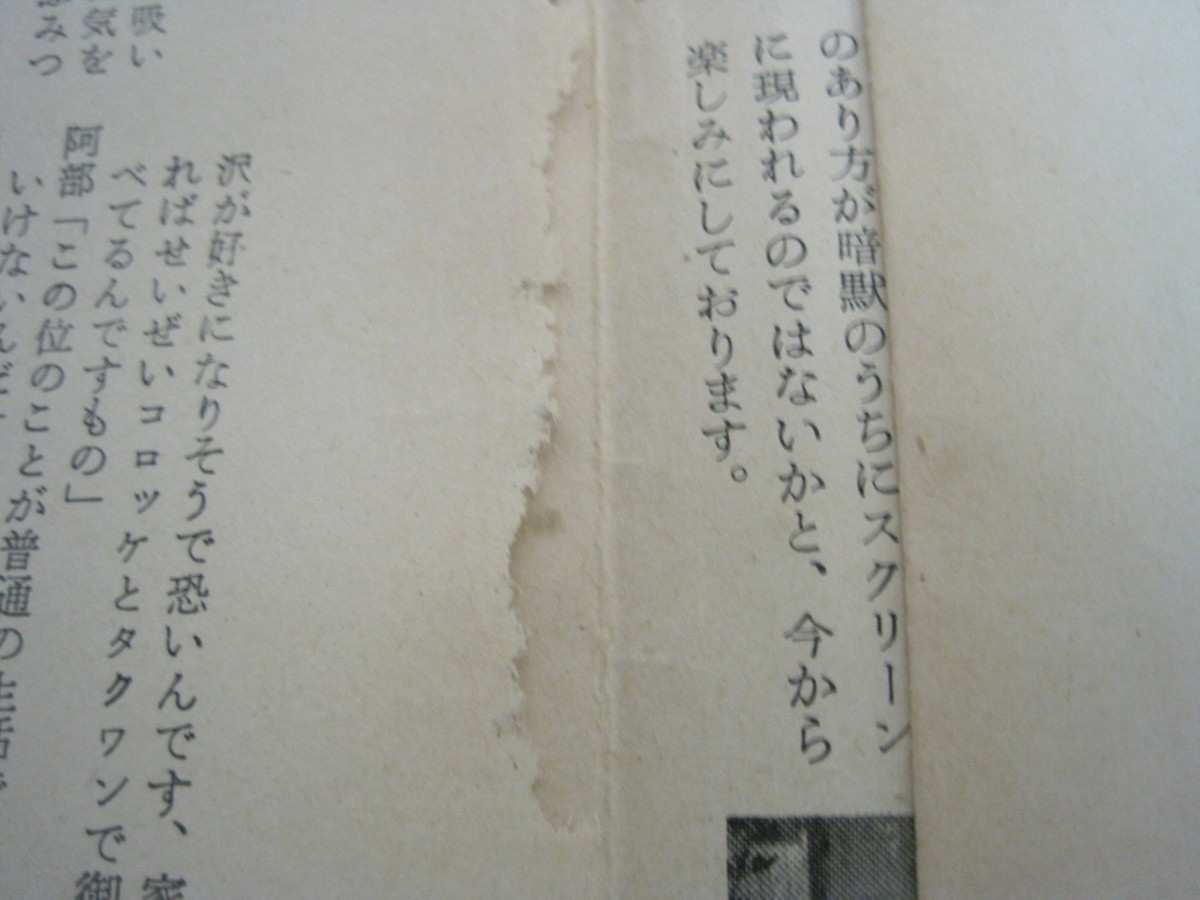 のあり方が暗默のうちにスクリーン
に現われるのではないかと、今から
楽しみにしております。
吸い
気を
みつ
沢が好きになりそうで恐いんです、家
ればせいぜいコロッケとタクワンで御
べてるんですもの」
阿部「この位のことが普通の生活で
いけないんだ